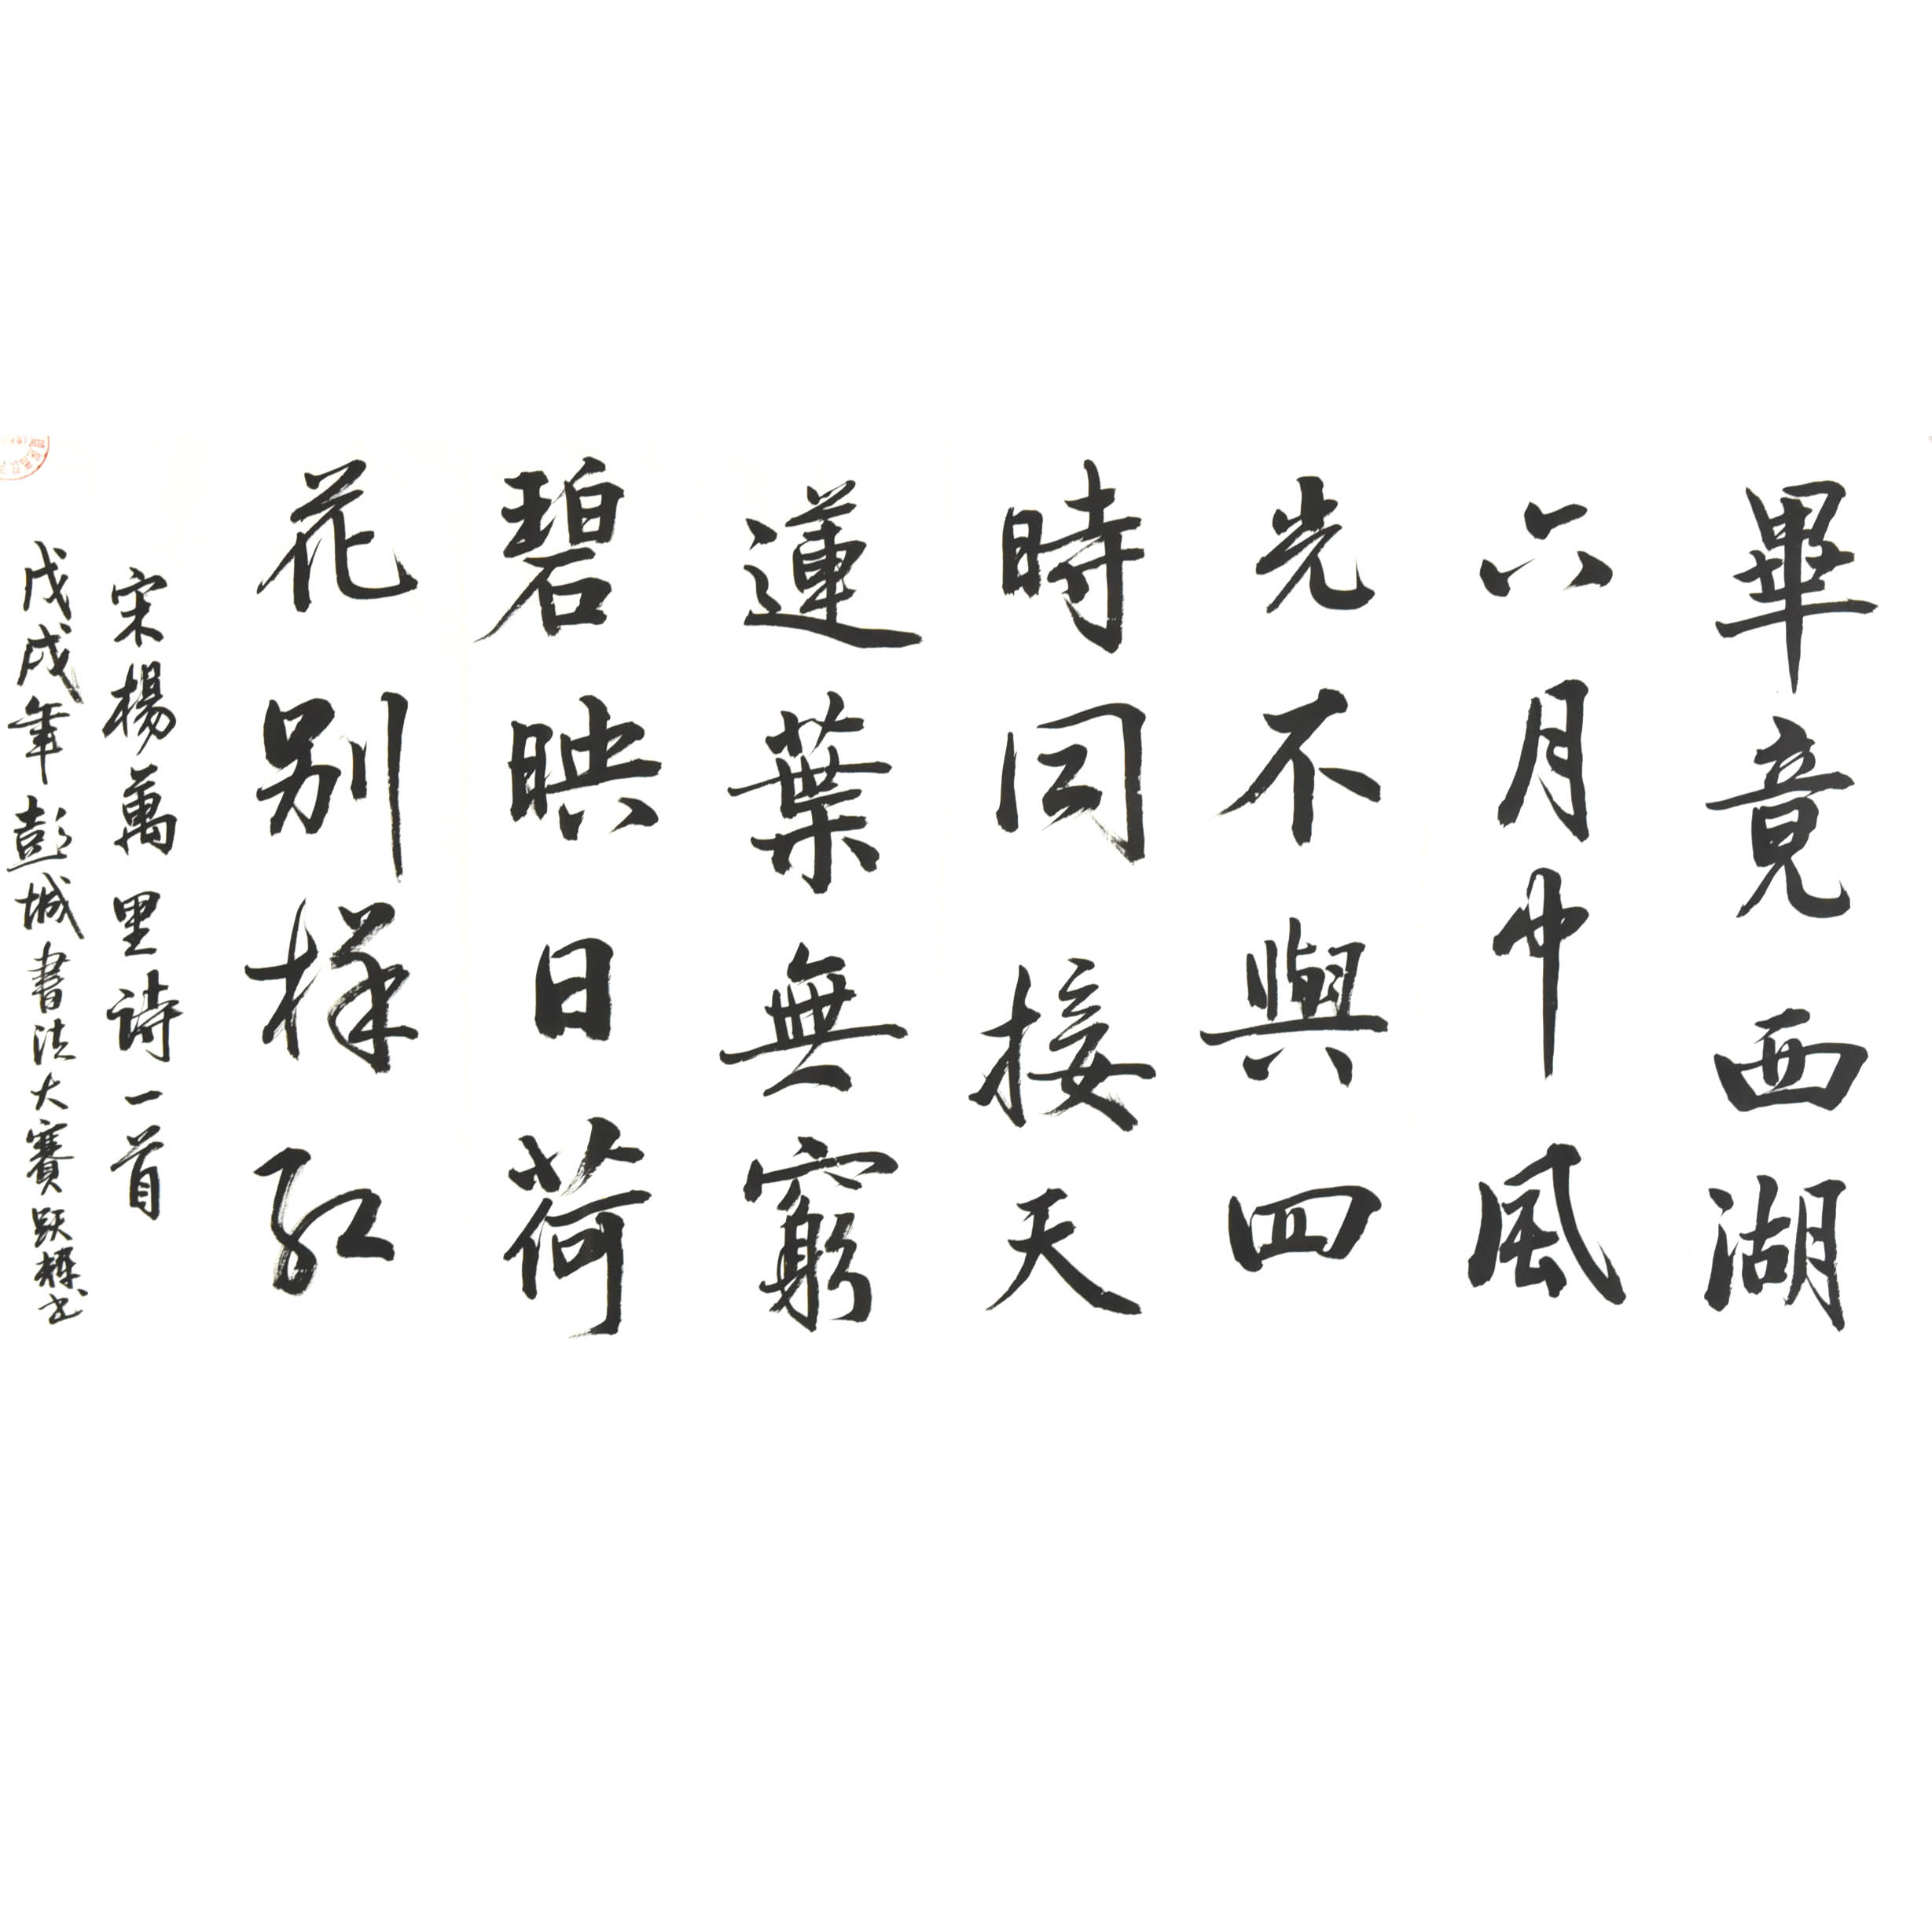 畢竟西湖
六月中風
光不與四
時同接天
蓮葉無窮
碧映日荷
花别樣紅
宋楊萬里诗一首
戊戌年彭城書法大賽跃輝书